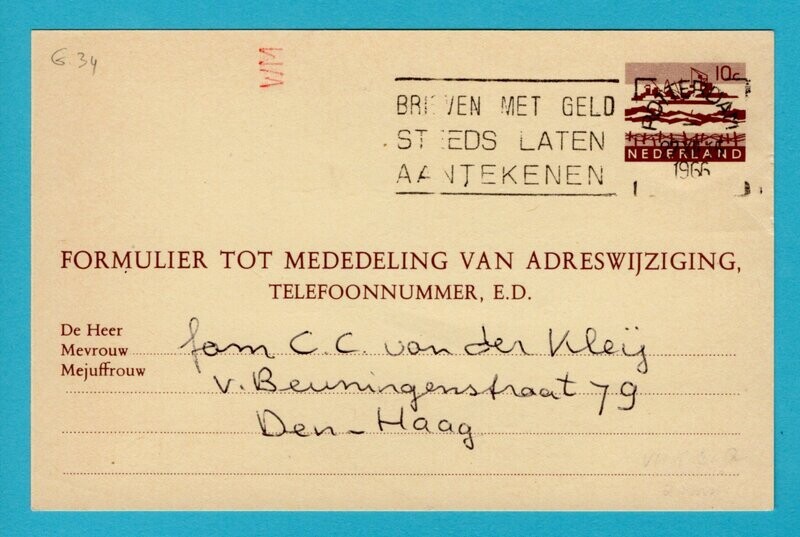 G 34
WM
10c
BRIEVEN MET GELD
STEEDS LATEN
AANTEKENEN
ROTTERDAM
1966
NEDERLAND
FORMULIER TOT MEDEDELING VAN ADRESWIJZIGING,
TELEFOONNUMMER, E.D.
De Heer
Mevrouw
Mejuffrouw
fam C.C. van der Kleij
v. Beuningenstraat 79
Den-Haag